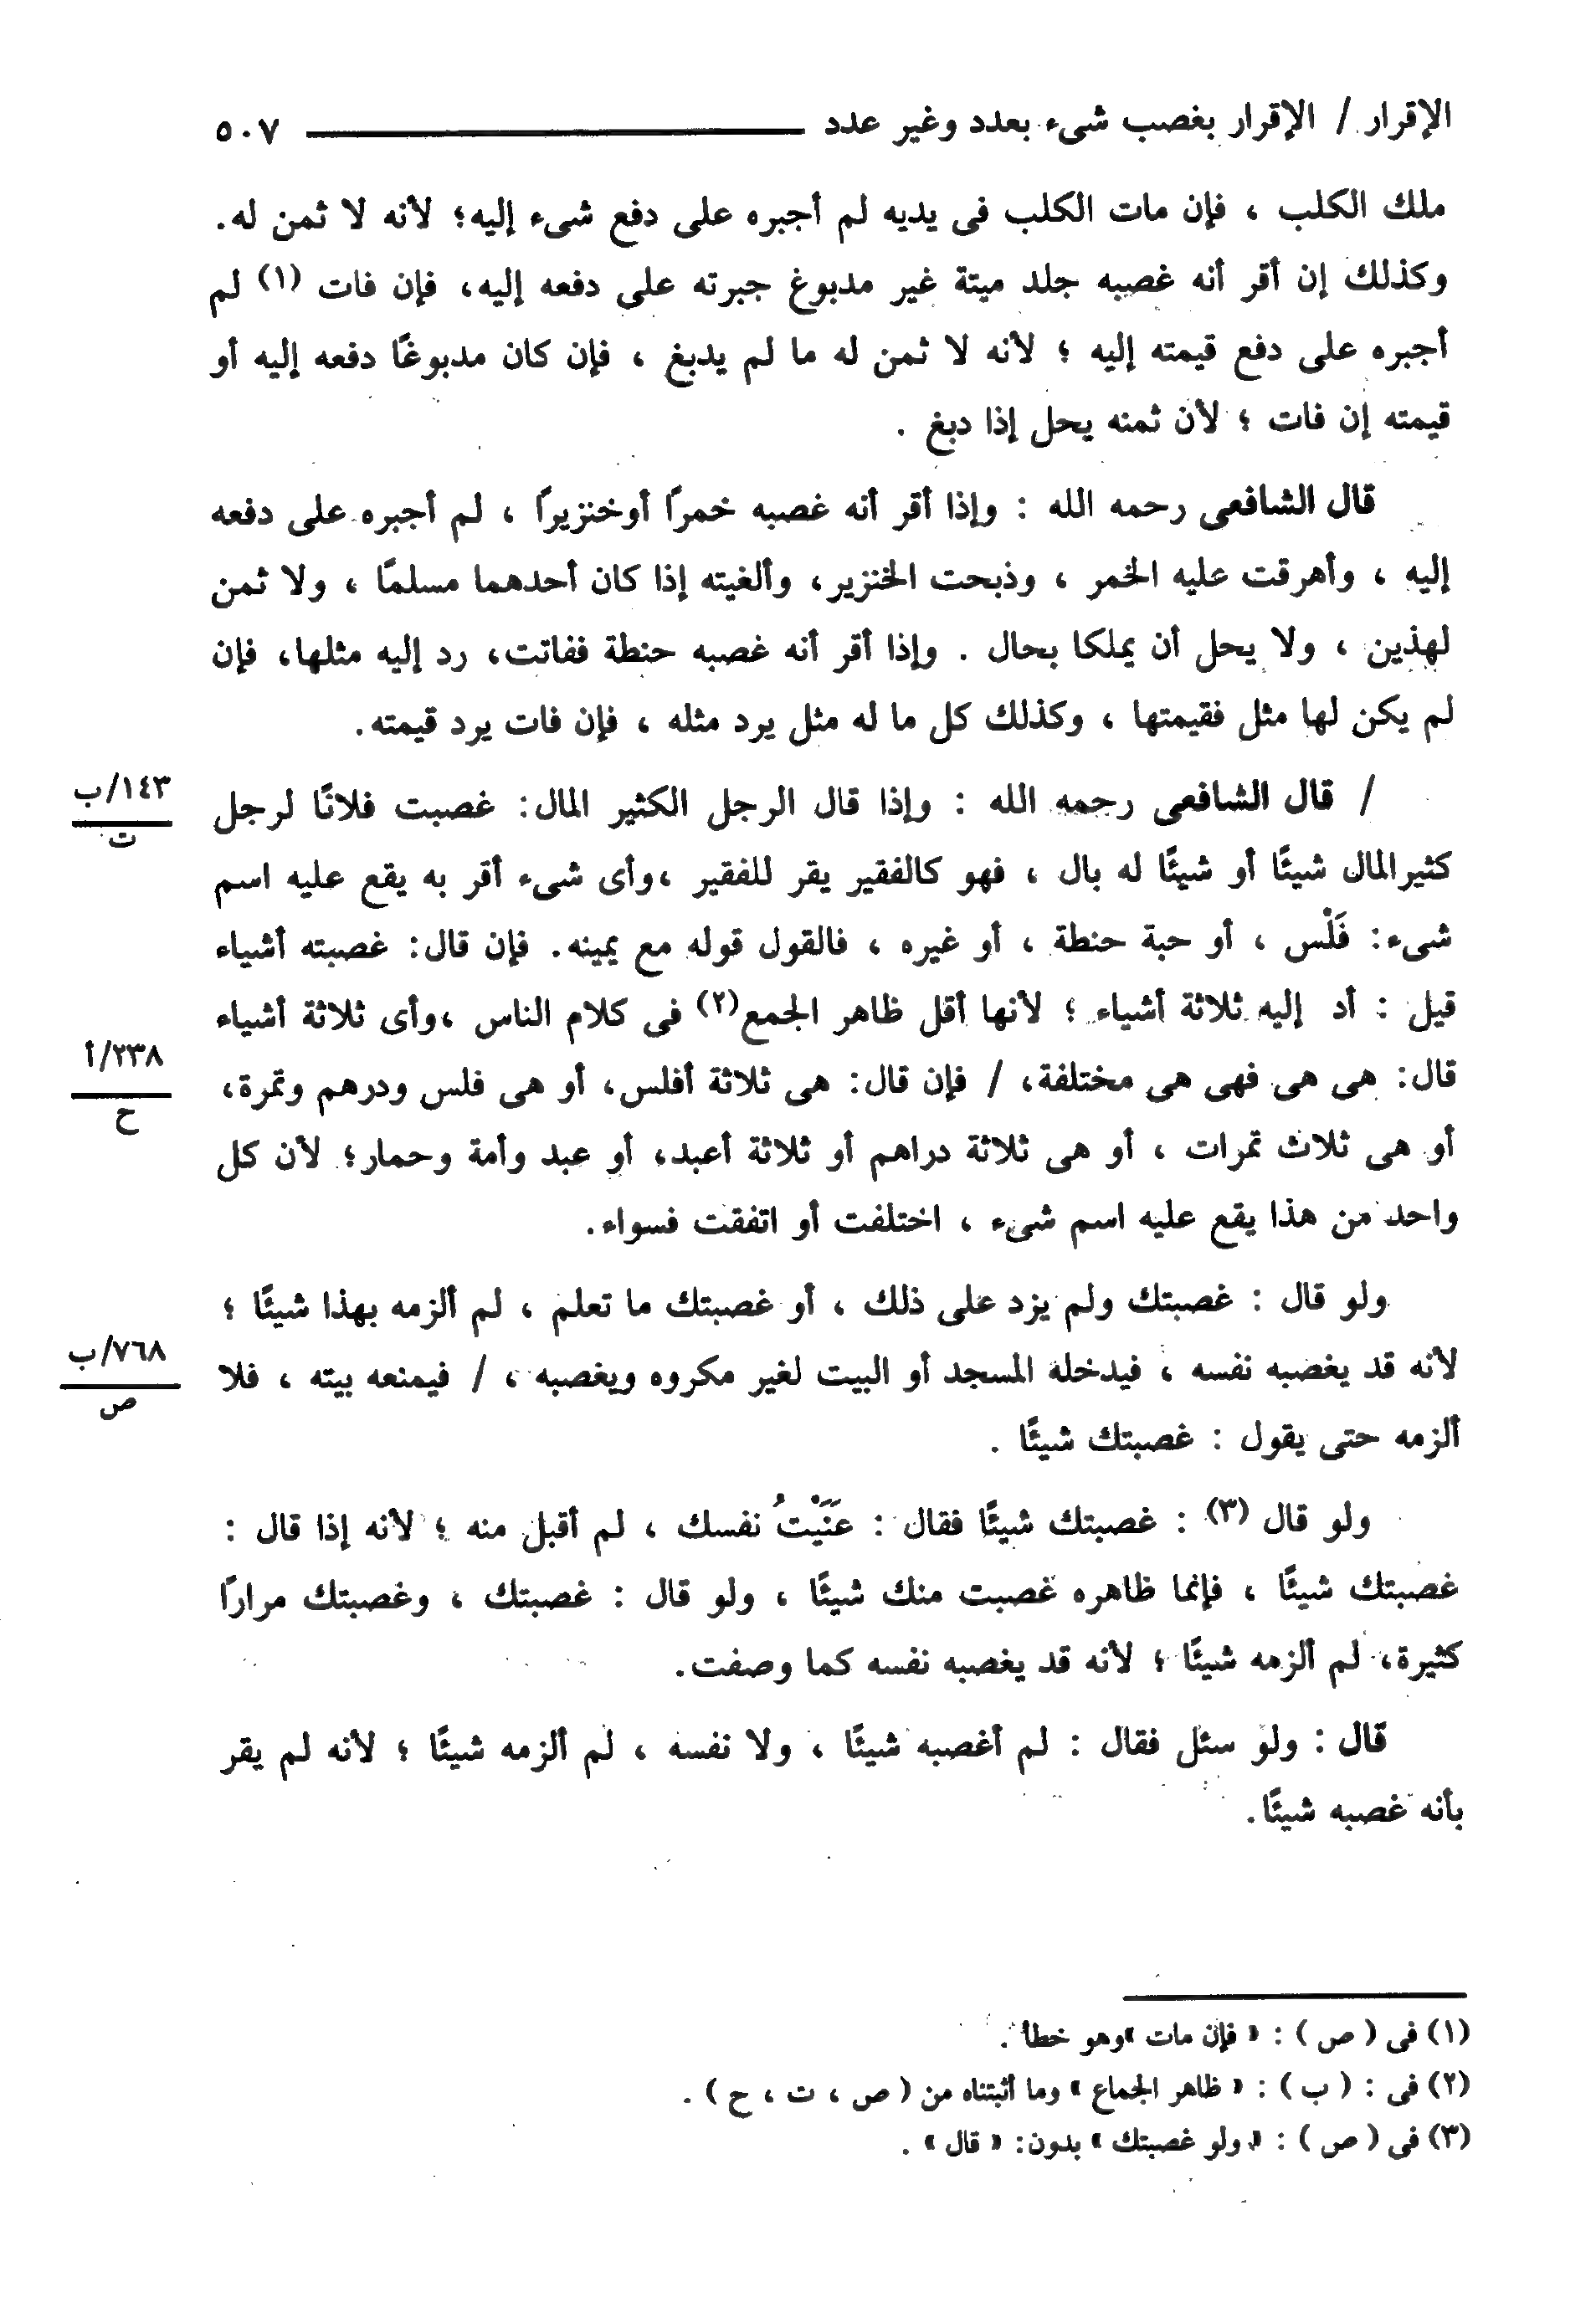 الإقرار / الإقرار بغصب شىء بعدد وغير عدد ٥٠٧
ملك الكلب ، فإن مات الكلب فى يديه لم أجبره على دفع شىء إليه؛ لأنه لا ثمن له.
وكذلك إن أقر أنه غصبه جلد ميتة غير مدبوغ جبرته على دفعه إليه، فإن فات (١) لم
أجبره على دفع قيمته إليه ؛ لأنه لا ثمن له ما لم يدبغ ، فإن كان مدبوغًا دفعه إليه أو
قيمته إن فات ؛ لأن ثمنه يحل إذا دبغ .
قال الشافعى رحمه الله : وإذا أقر أنه غصبه خمرًا أوخنزيرًا ، لم أجبره على دفعه
إليه ، وأهرقت عليه الخمر ، وذبحت الخنزير، وألغيته إذا كان أحدهما مسلمًا ، ولا ثمن
لهذين ، ولا يحل أن يملكا بحال . وإذا أقر أنه غصبه حنطة ففاتت، رد إليه مثلها، فإن
لم يكن لها مثل فقيمتها ، وكذلك كل ما له مثل يرد مثله ، فإن فات يرد قيمته.
/ قال الشافعى رحمه الله : وإذا قال الرجل الكثير المال: غصبت فلانًا لرجل
١٤٣/ب
ت
كثيرالمال شيئًا أو شيئًا له بال ، فهو كالفقير يقر للفقير ،وأى شىء أقر به يقع عليه اسم
شىء: فَلْس ، أو حبة حنطة ، أو غيره ، فالقول قوله مع يمينه. فإن قال: غصبته أشياء
قيل : أد إليه ثلاثة أشياء ؛ لأنها أقل ظاهر الجمع(٢) فى كلام الناس ،وأى ثلاثة أشياء
قال: هى هى فهى هى مختلفة، / فإن قال: هى ثلاثة أفلس، أو هى فلس ودرهم وتمرة،
٢٣٨/أ
ح
أو هى ثلاث تمرات ، أو هى ثلاثة دراهم أو ثلاثة أعبد، أو عبد وأمة وحمار؛ لأن كل
واحد من هذا يقع عليه اسم شىء ، اختلفت أو اتفقت فسواء.
ولو قال : غصبتك ولم يزد على ذلك ، أو غصبتك ما تعلم ، لم ألزمه بهذا شيئًا ؛
لأنه قد يغصبه نفسه ، فيدخله المسجد أو البيت لغير مكروه ويغصبه ، / فيمنعه بيته ، فلا
٧٦٨/ب
ص
ألزمه حتى يقول : غصبتك شيئًا .
ولو قال (٣) : غصبتك شيئًا فقال : عَنَيْتُ نفسك ، لم أقبل منه ؛ لأنه إذا قال :
غصبتك شيئًا ، فإنما ظاهره غصبت منك شيئًا ، ولو قال : غصبتك ، وغصبتك مرارًا
كثيرة، لم ألزمه شيئًا ؛ لأنه قد يغصبه نفسه كما وصفت.
قال : ولو سئل فقال : لم أغصبه شيئًا ، ولا نفسه ، لم ألزمه شيئًا ؛ لأنه لم يقر
بأنه غصبه شيئًا.
(١) فى ( ص ) : « فإن مات »وهو خطأ .
(٢) فى : ( ب ) : « ظاهر الجماع » وما أثبتناه من ( ص ، ت ، ح ) .
(٣) فى ( ص ) : « ولو غصبتك » بدون: « قال » .